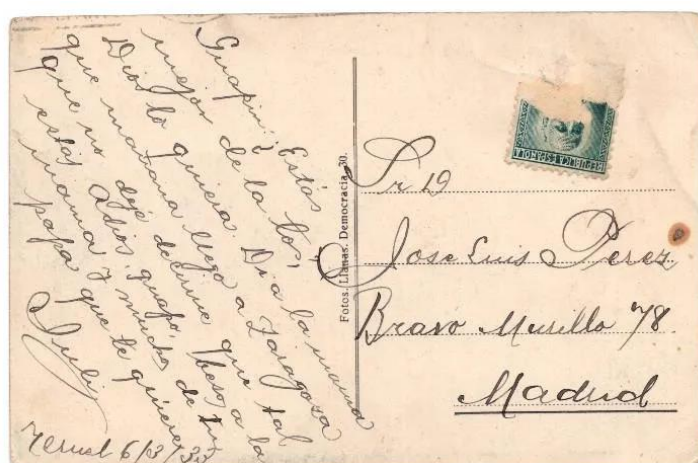 Guapin: ¿Estás
mejor de la tos,
Dios lo quiera. Di a la mamá
que mañana llego a Zaragoza
que no deje decirme que tal
estás. Adios guapo, besos a la
mama y muchos de tu
papa que te quiere
Teruel
Fotos. Llanas. Democracia, 30.
REPUBLICA ESPAÑOLA
Sr D
Jose Luis Perez
Bravo Murillo 78.
Madrid